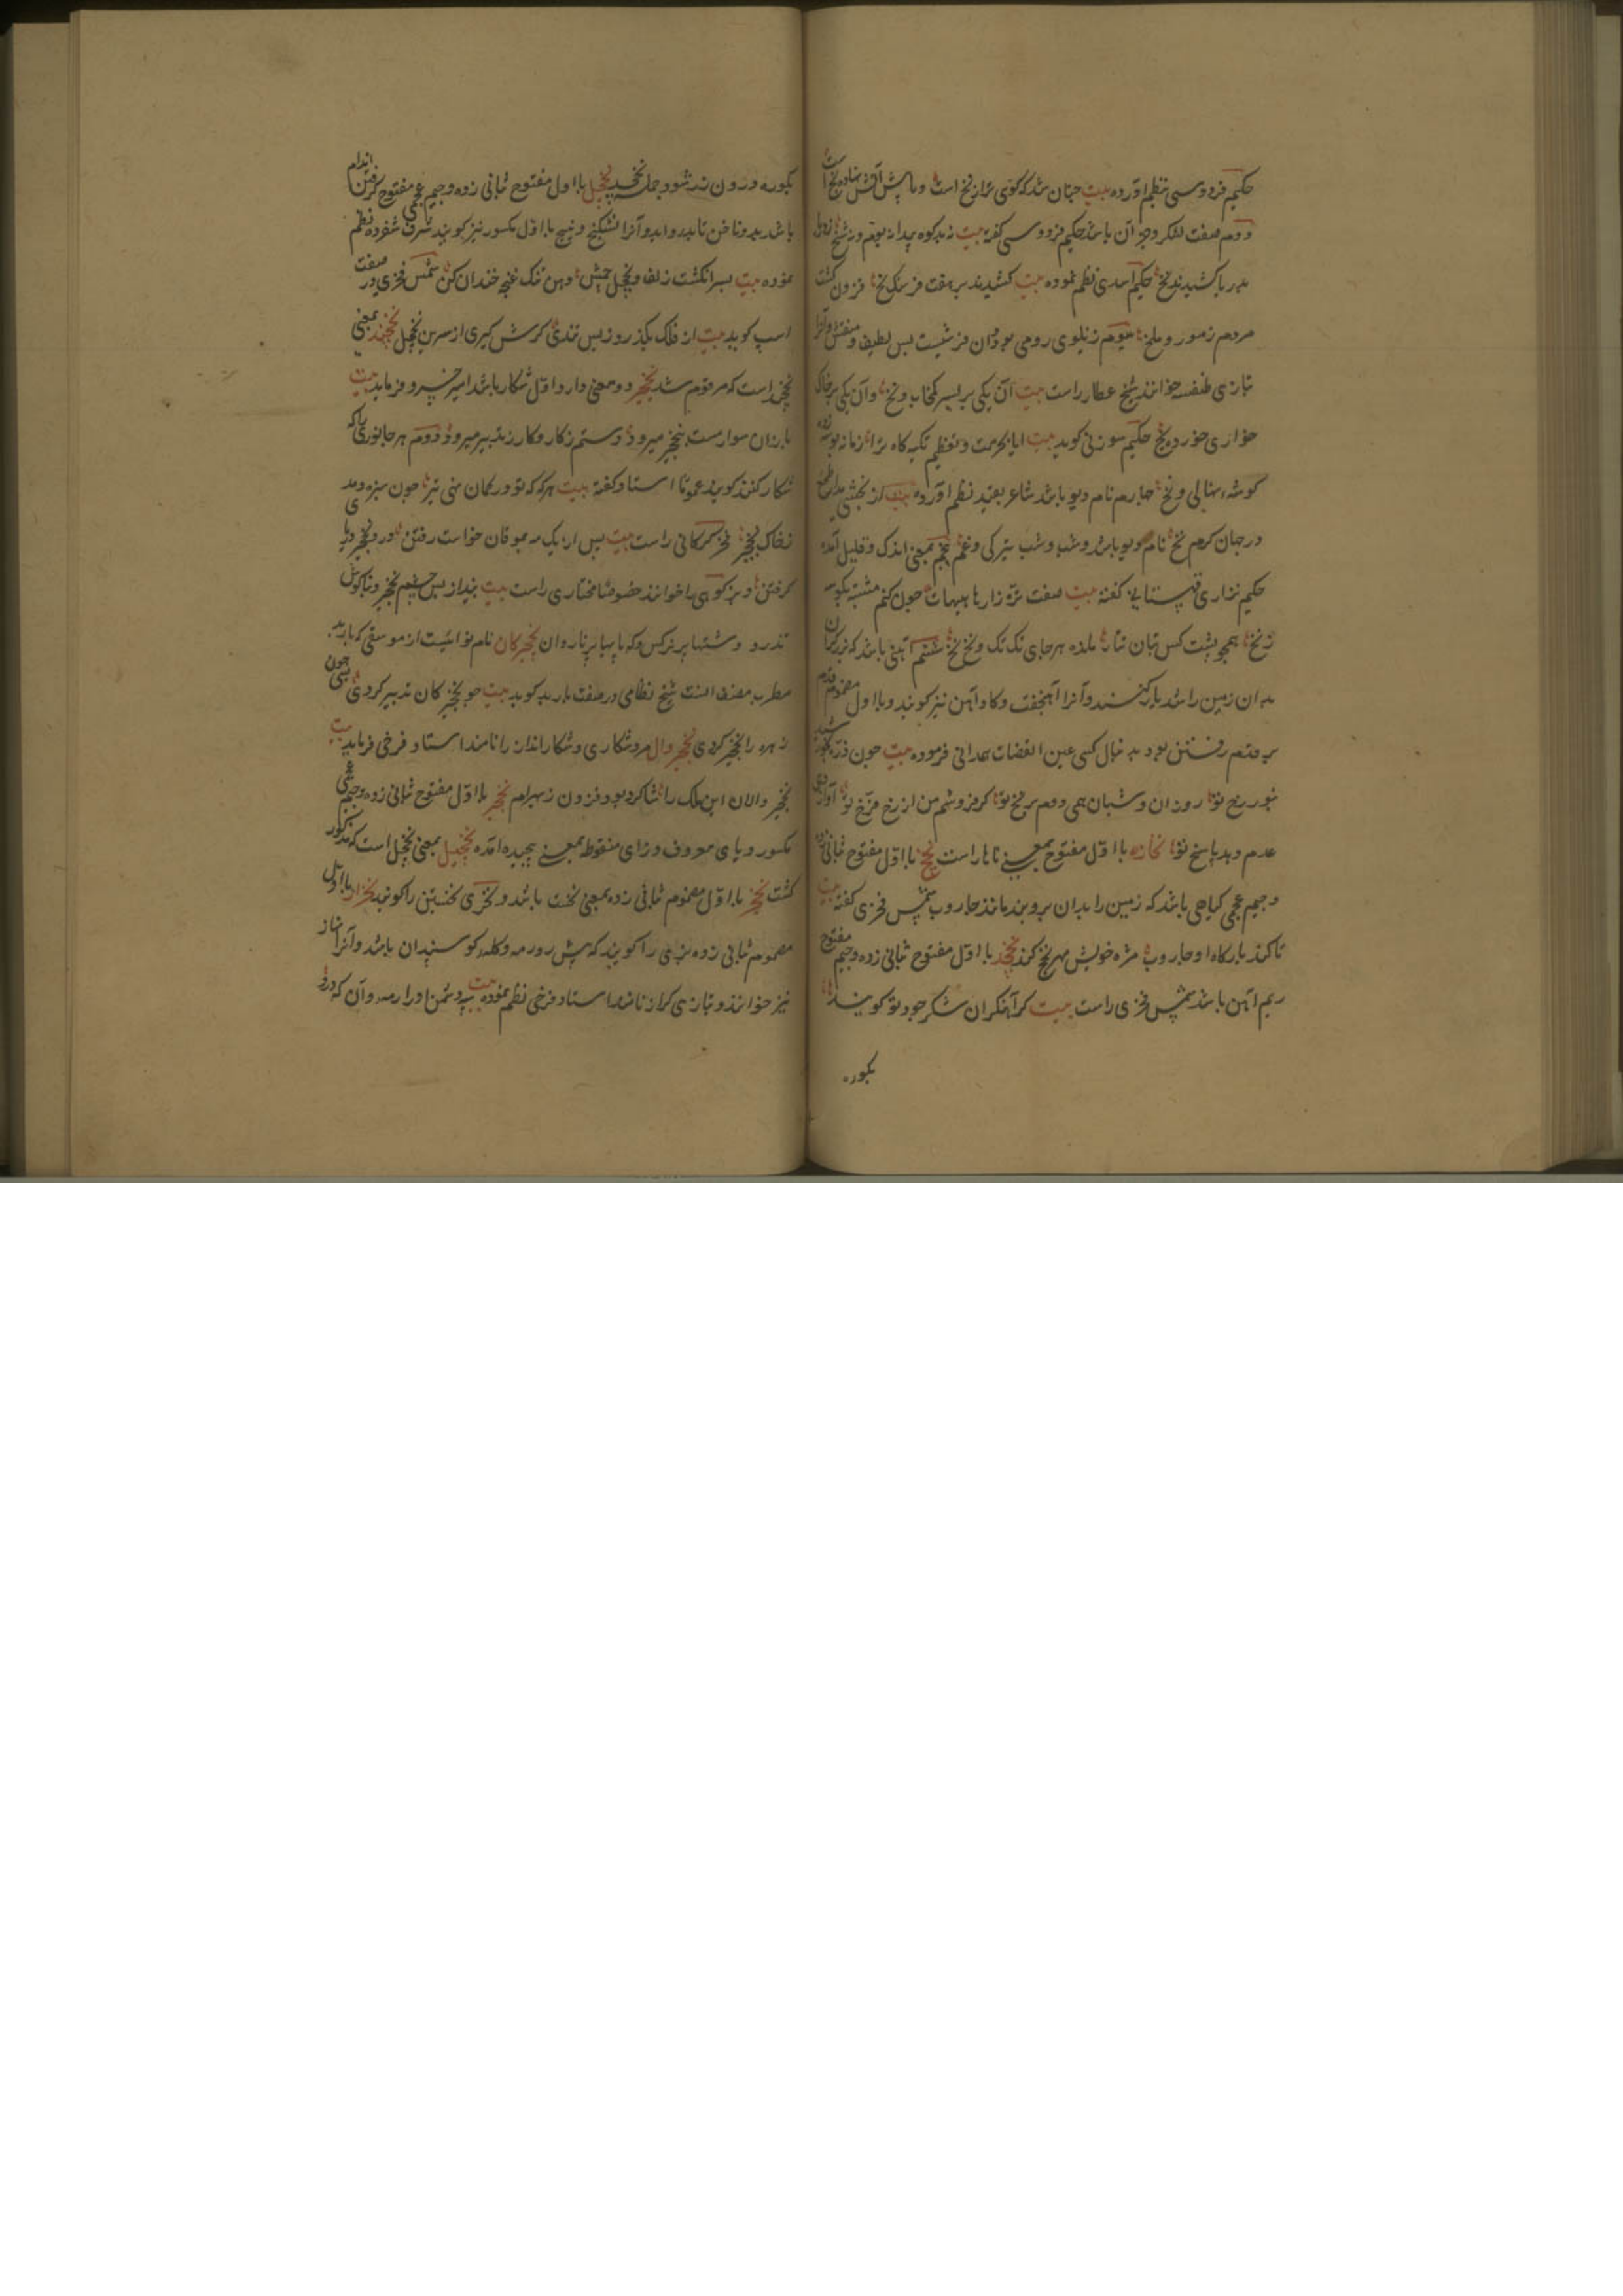 حکیم فردوسی بنظم آورده بیت چنان شد که گوی تراز نخ است و یا پیش آتش نهاده یخ است
دوم صف لشکر و جز آن باشد حکیم فردوسی گفته بیت نه بد کوه پیدا نه بوم و نه شخ ز دریا
بدریا کشیدند نخ حکیم اسدی نظم نموده بیت کشیدند بر هفت فرسنگ نخ فزون گشت
مردم ز مور و ملخ سیوم زیلوی رومی بود و آن فرشیست بس لطیف و منقش و آنرا
بتازی طنفسه خوانند شیخ عطار راست بیت آن یکی بر بستر کمخاب و نخ وآن یکی بر خاک
خواری خورده یخ حکیم سوزنی گوید بیت ایا بحرمت و تعظیم تکیه گاه ترا زمانه
گوشه نهالی و نخ چهارم نام دیو باشد شاعر بقید نظم آورده بیت
در جهان کرم نخ نام دیو باشد و شب و شب تیرگی و غم پنجم بمعنی اندک و قلیل آمده
حکیم نزاری قهستانی گفته بیت صفت تره زار ما هیهات چون کنم
نخ همچو پشت کس بتان تتار مانده هر جای تک تک و نخ نخ ششم آهنی باشد که برزگران
بدان زمین را شدیار کنند و آنرا آهنجفت و گاو آهن نیز گویند و با اول مضموم قدم
بر قدم رفتن بود بدنبال کسی عین القضات همدانی فرموده بیت چون ذره
بنور رخ تو روزان و شبان همی دوم بر نخ تو گر فروشم من از رخ فرخ تو آواز
عدم دهد پاسخ تو نخازه با اول مفتوح بمعنی ناهار است نخج با اول مفتوح ثانی زده
و جیم عجمی گیاهی باشد که زمین را بدان بروبند مانند جاروب شمس فخری گفته بیت
تا کند بارگاه او جاروب مژه خویش مهر نخج کند نخچد با اول مفتوح ثانی زده و جیم مفتوح
ریم آهن باشد شمس فخری راست بیت گر آهنگران شکر جود تو گویند
بکوره
بکوره درون زر شود جمله نخچد نخچل با اول مفتوح ثانی زده و جیم عجمی مفتوح گرفتن اندام
باشد بدو ناخن تا بدرد آید و آنرا نشکنج و نیز با اول مکسور نیز گویند شرف شفروه نظم
نموده بیت بسر انگشت زلف و نخچل چشم دهن تنگ غنچه خندان کن شمس فخری در صفت
اسپ گوید بیت از فلک بگذرد ز بس تندی گرش گیری از سرین نخچل نخچند بمعنی
نخچد است که مرقوم شد نخچیر دو معنی دارد اول شکار باشد امیر خسرو فرماید بیت
یارندان سوار مست بنخچیر میرود دستم ز کار و کار ز تدبیر میرود دوم هر جانوری را که
شکار کنند گویند عموما استاد گفته بیت هر گه که تو در کمان نهی تیر چون سبزه دمد
ز خاک نخچیر فخر گرگانی راست بیت پس از یک مه بموقان خواست رفتن در و نخچیر دریا
گرفتن و بز کوهی را خوانند خصوصا مختاری راست بیت بینداز بس چشم نخچیر و بناگوش
تذرو دشتها پر نرگس و که پایها پر نارون نخچیرگان نام نوائیست از موسیقی که باربد
مطرب مصنف آنست شیخ نظامی در صفت باربد گوید بیت چو نخچیرگان تدبیر کردی بسی چون
زهره را نخچیر کردی نخچیروال مرد شکاری و شکار انداز را نامند استاد فرخی فرماید بیت
نخچیر والان این ملک را شاگرد بود فزون ز بهرام نخچیز با اول مفتوح ثانی زده و جیم عجمی
مکسور و یای معروف و زای منقوط بمعنی پیچیده آمده نخچیل بمعنی نخچل است که مذکور
گشت نخچیز با اول مضموم ثانی زده بمعنی نخست باشد و نخری نخستین را گویند نخراز با اول
مضموم ثانی زده بزی را گویند که پیش رو رمه و گله گوسپندان باشد و آنرا نهاز
نیز خوانند و بتازی کراز نامند استاد فرخی نظم نموده بیت سپه دشمن او را رمه دان که درو